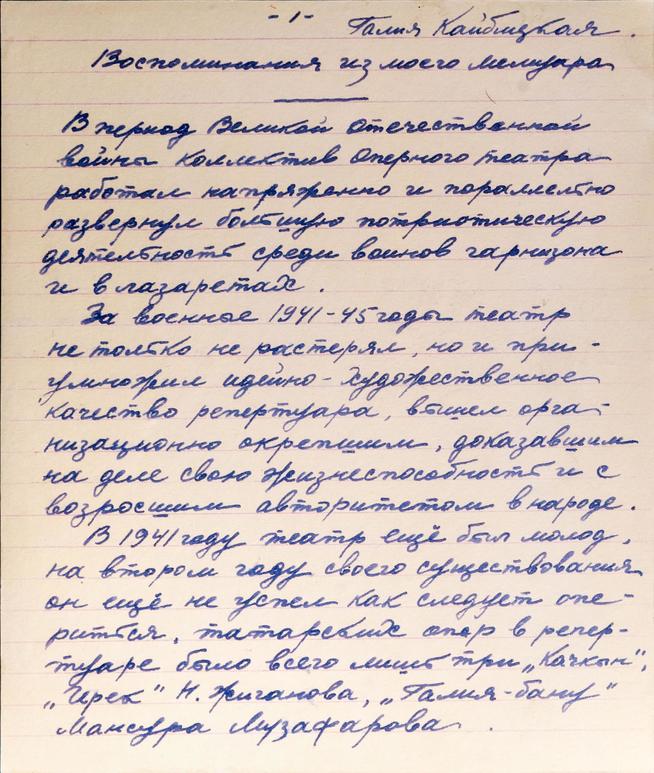 - 1 -
Галия Кайбицкая.
Воспоминания из моего мемуара
В период Великой Отечественной
войны коллектив Оперного театра
работал напряженно и пораллелно
развернул большую потриотическую
деятельность среди воинов гарнизона
и в лазаретах.
За военные 1941-45 годы театр
не только не растерял, но и при-
умножил идейно-художественное
качество репертуара, вышел орга-
низационно окрепшим, доказавшим
на деле свою жизнеспособность и с
возросшим авторитетом в народе.
В 1941 году театр ещё был молод,
на втором году своего существования
он ещё не успел как следует опе-
риться, татарских опер в репер-
туаре было всего лишь три „Качкын",
„Ирек" Н. Жиганова, „Галия-бану"
Мансура Музафарова.